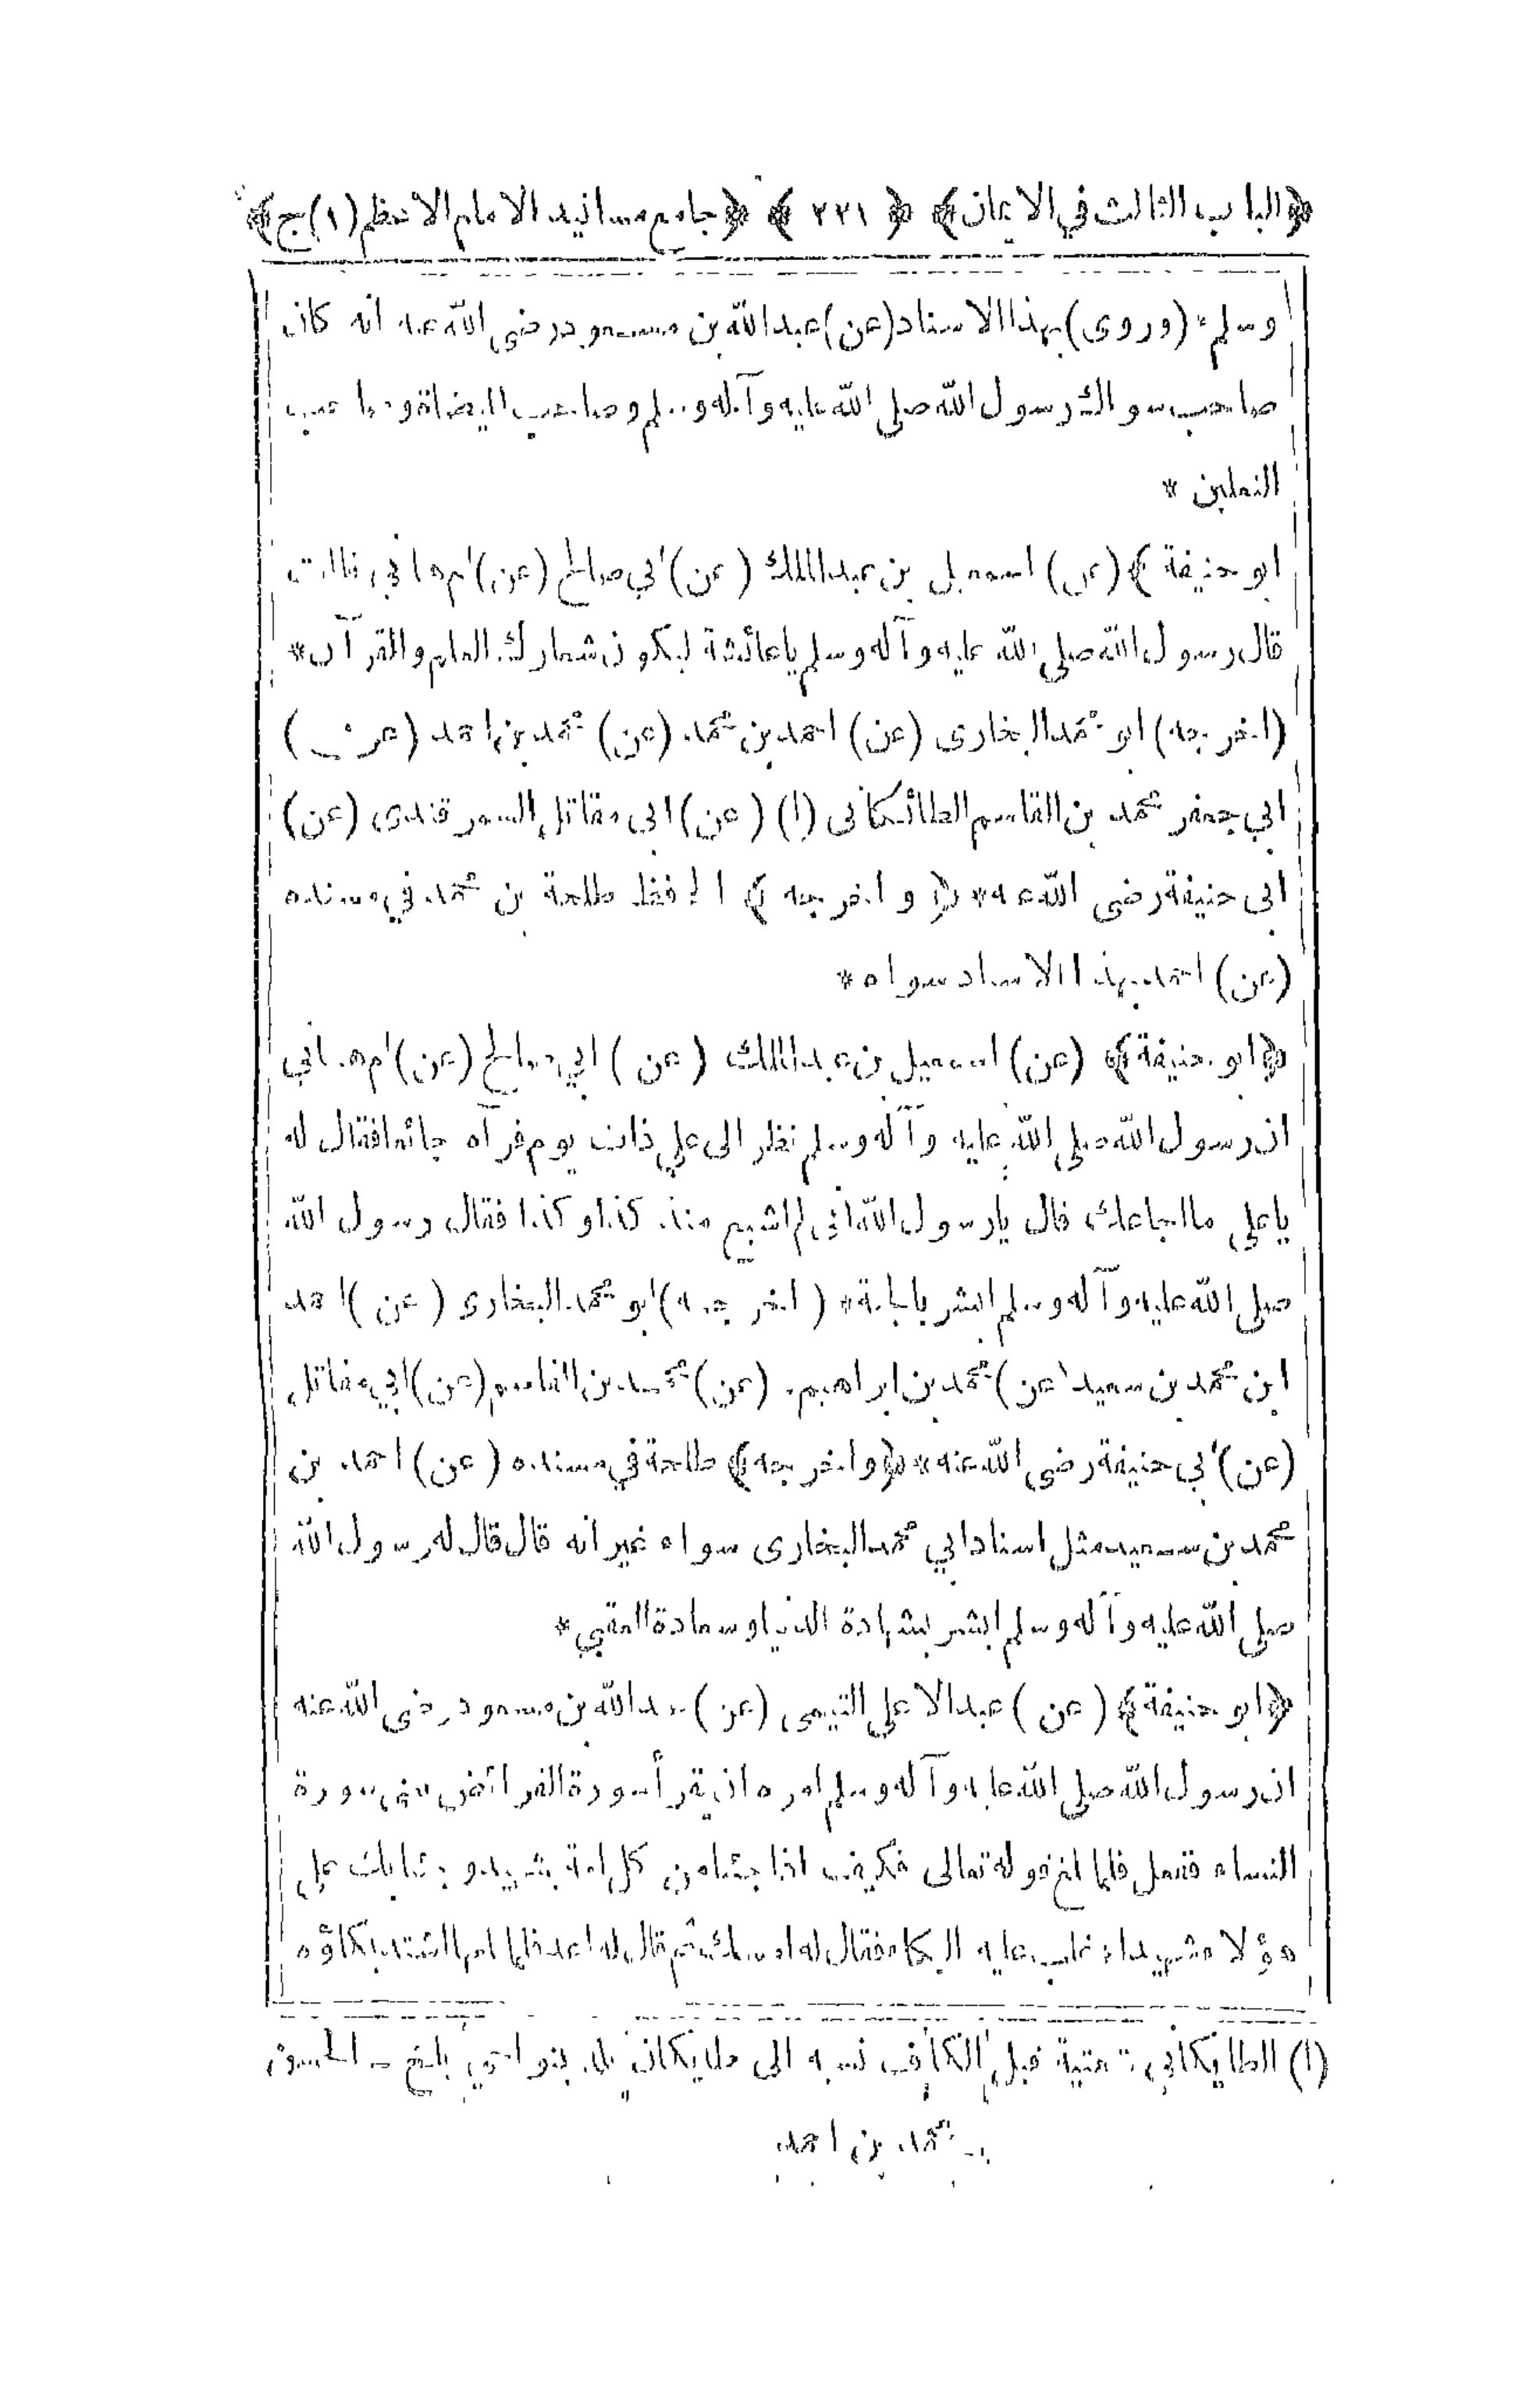 ﴿الباب الثالث في الايمان﴾ ﴿ ٢٢١ ﴾ ﴿جامع مسانيد الامام الاعظم(١)ج﴾
وسلم* (وروى) بهذا الاسناد (عن) عبدالله بن مسعود رضى الله عنه انه كان
صاحب سواك رسول الله صلى الله عليه وآله وسلم وصاحب الميضاة وصاحب
النعلين *
ابو حنيفة ﴾ (عن) اسمعيل بن عبدالملك (عن) ابي صالح (عن) ام هاني قالت
قال رسول الله صلى الله عليه وآله وسلم ياعائشة ليكون شعارك العلم والقرآن*
(اخرجه) ابو محمد البخارى (عن) احمد بن محمد (عن) محمد بن احمد (عن)
ابي جعفر محمد بن القاسم الطائكانى (١) (عن) ابى مقاتل السمرقندى (عن)
ابى حنيفة رضى الله عنه* ﴿ واخرجه ﴾ الحافظ طلحة بن محمد في مسنده
(عن) احمد بهذا الاسناد سواء*
﴿ابو حنيفة﴾ (عن) اسمعيل بن عبدالملك (عن) ابي صالح (عن) ام هاني
ان رسول الله صلى الله عليه وآله وسلم نظر الى علي ذات يوم فرآه جائعا فقال له
ياعلى ما اجاعك قال يارسول الله انى لم اشبع منذ كذا وكذا فقال رسول الله
صلى الله عليه وآله وسلم ابشر بالجنة* (اخرجه) ابو محمد البخارى (عن) احمد
ابن محمد بن سعيد (عن) محمد بن ابراهيم (عن) محمد بن القاسم (عن) ابي مقاتل
(عن) ابي حنيفة رضى الله عنه* ﴿واخرجه﴾ طلحة في مسنده (عن) احمد بن
محمد بن سعيد مثل اسناد ابي محمد البخارى سواء غير انه قال قال له رسول الله
صلى الله عليه وآله وسلم ابشر بشهادة الدنيا وسعادة العقبي*
﴿ابو حنيفة﴾ (عن) عبدالاعلى التيمى (عن) عبدالله بن مسعود رضى الله عنه
ان رسول الله صلى الله عليه وآله وسلم امره ان يقرأ سورة الفرائض يعنى سورة
النساء ففعل فلما بلغ قوله تعالى فكيف اذا جئنا من كل امة بشهيد وجئنا بك على
هؤلاء شهيدا غلب عليه البكاء فقال له امسك ثم قال له اعد فلما اشتد بكاؤه
(١) الطايكاني بتحتية قبل الكاف نسبه الى طايكان بلد بنواحي بلخ ـ الحسن
بن محمد بن احمد